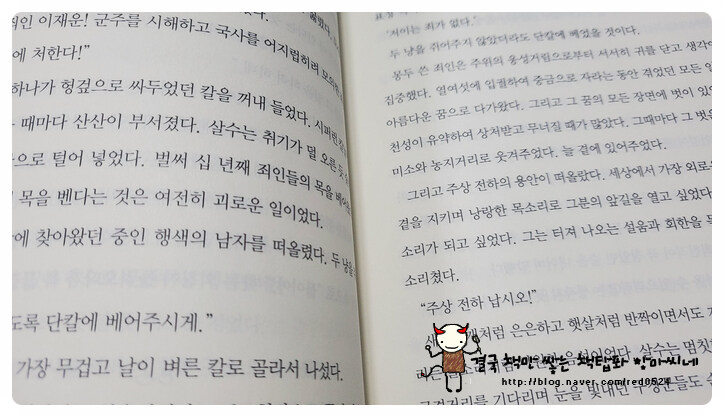 죄인 이재운! 군주를 시해하고 국사를 어지럽히려
에 처한다!”
하나가 헝겊으로 싸두었던 칼을 꺼내 들었다. 시퍼런
때마다 산산이 부서졌다. 살수는 취기가 덜 오른 듯
으로 털어 넣었다. 벌써 십 년째 죄인들의 목을 베어
목을 벤다는 것은 여전히 괴로운 일이었다.
에 찾아왔던 중인 행색의 남자를 떠올렸다. 두 냥을
도록 단칼에 베어주시게.”
가장 무겁고 날이 벼른 칼로 골라서 나섰다.
“저이는 죄가 없다.”
두 냥을 쥐어주지 않았더라도 단칼에 베었을 것이다.
봉두 쓴 죄인은 주위의 웅성거림으로부터 서서히 귀를 닫고 생각에
집중했다. 열여섯에 입궐하여 중금으로 자라는 동안 겪었던 모든 일
아름다운 꿈으로 다가왔다. 그리고 그 꿈의 모든 장면에 벗이 있었
천성이 유약하여 상처받고 무너질 때가 많았다. 그때마다 그 벗은
미소와 농지거리로 웃겨주었다. 늘 곁에 있어주었다.
그리고 주상 전하의 용안이 떠올랐다. 세상에서 가장 외로운
곁을 지키며 낭랑한 목소리로 그분의 앞길을 열고 싶었다
소리가 되고 싶었다. 그는 터져 나오는 설움과 회한을 목
소리쳤다.
“주상 전하 납시오!”
처럼 은은하고 햇살처럼 반짝이면서도
음성이었다. 살수는 멈칫
기다리며 눈을 빛내던
결국 책만 쌓는 책탑화 향마씨네
http://blog.naver.com/red0524